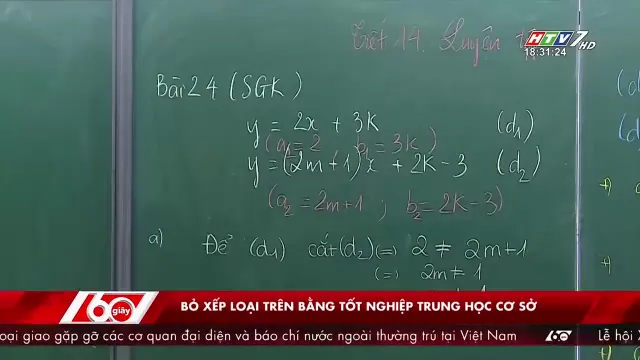 Tiết 14. Luyện
HTV7 HD
18:31:24
Bài 24 (SGK)
y = 2x + 3k (d1)
(a1 = 2 b1 = 3k)
y = (2m+1)x + 2k-3 (d2)
(a2 = 2m+1 ; b2 = 2k-3)
a) Để (d1) cắt (d2) (=) 2 ≠ 2m+1
(=) 2m ≠ 1
60 giây
BỎ XẾP LOẠI TRÊN BẰNG TỐT NGHIỆP TRUNG HỌC CƠ SỞ
oại giao gặp gỡ các cơ quan đại diện và báo chí nước ngoài thường trú tại Việt Nam 60 Lễ hội